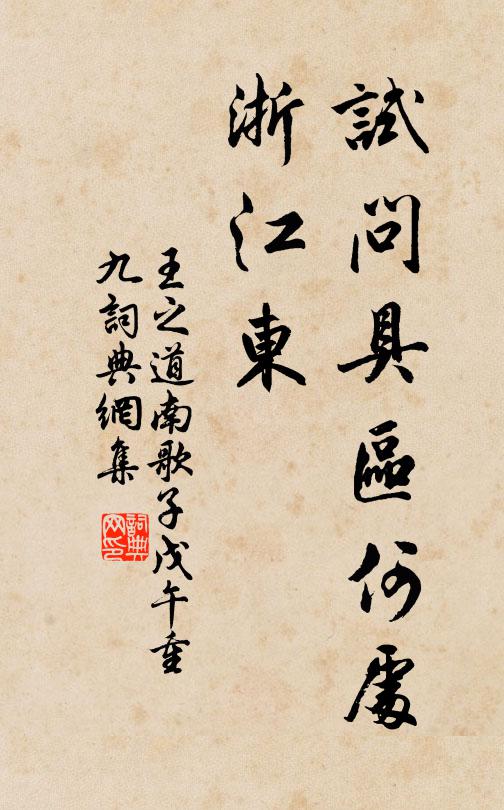 試問具區何處
浙江東
王之道南歌子戊午重
九詞典網集
詞典
网印